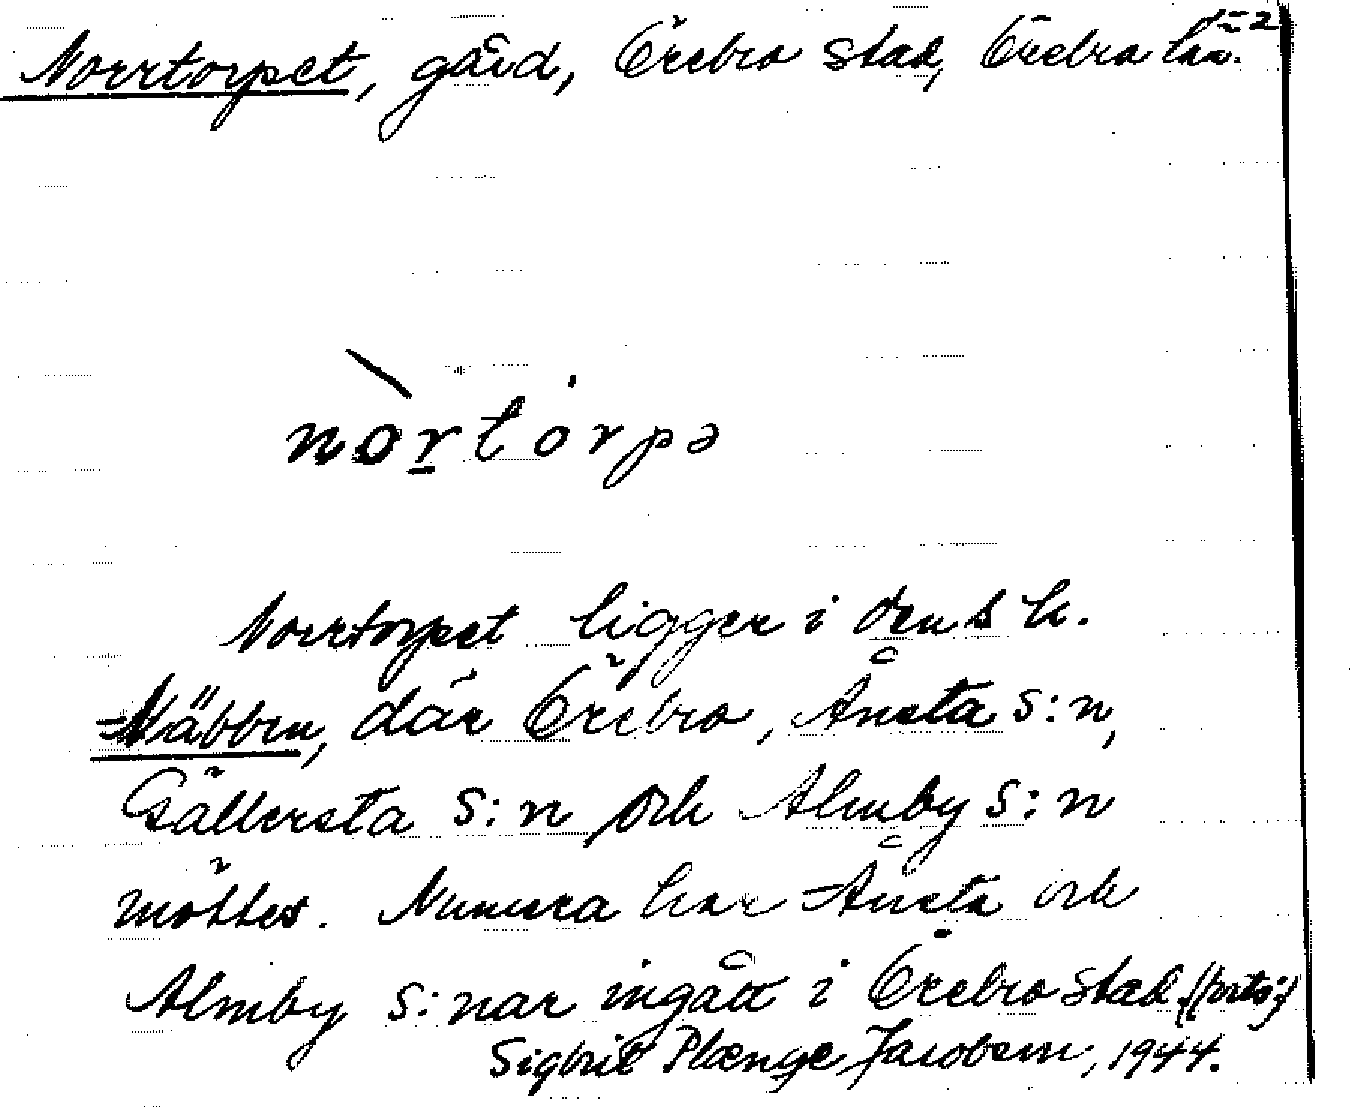 Norrtorpet, gård, Örebro stad, Örebro län.
nòrtȯrpə
Norrtorpet ligger i den s k.
Näbben, där Örebro, Ånsta s:n,
Gällersta s:n och Almby s:n
möttes. Numera har Ånsta och
Almby s:nar ingått i Örebro stad (forts.)
Sigbrit Plænge Jacobson, 1944.